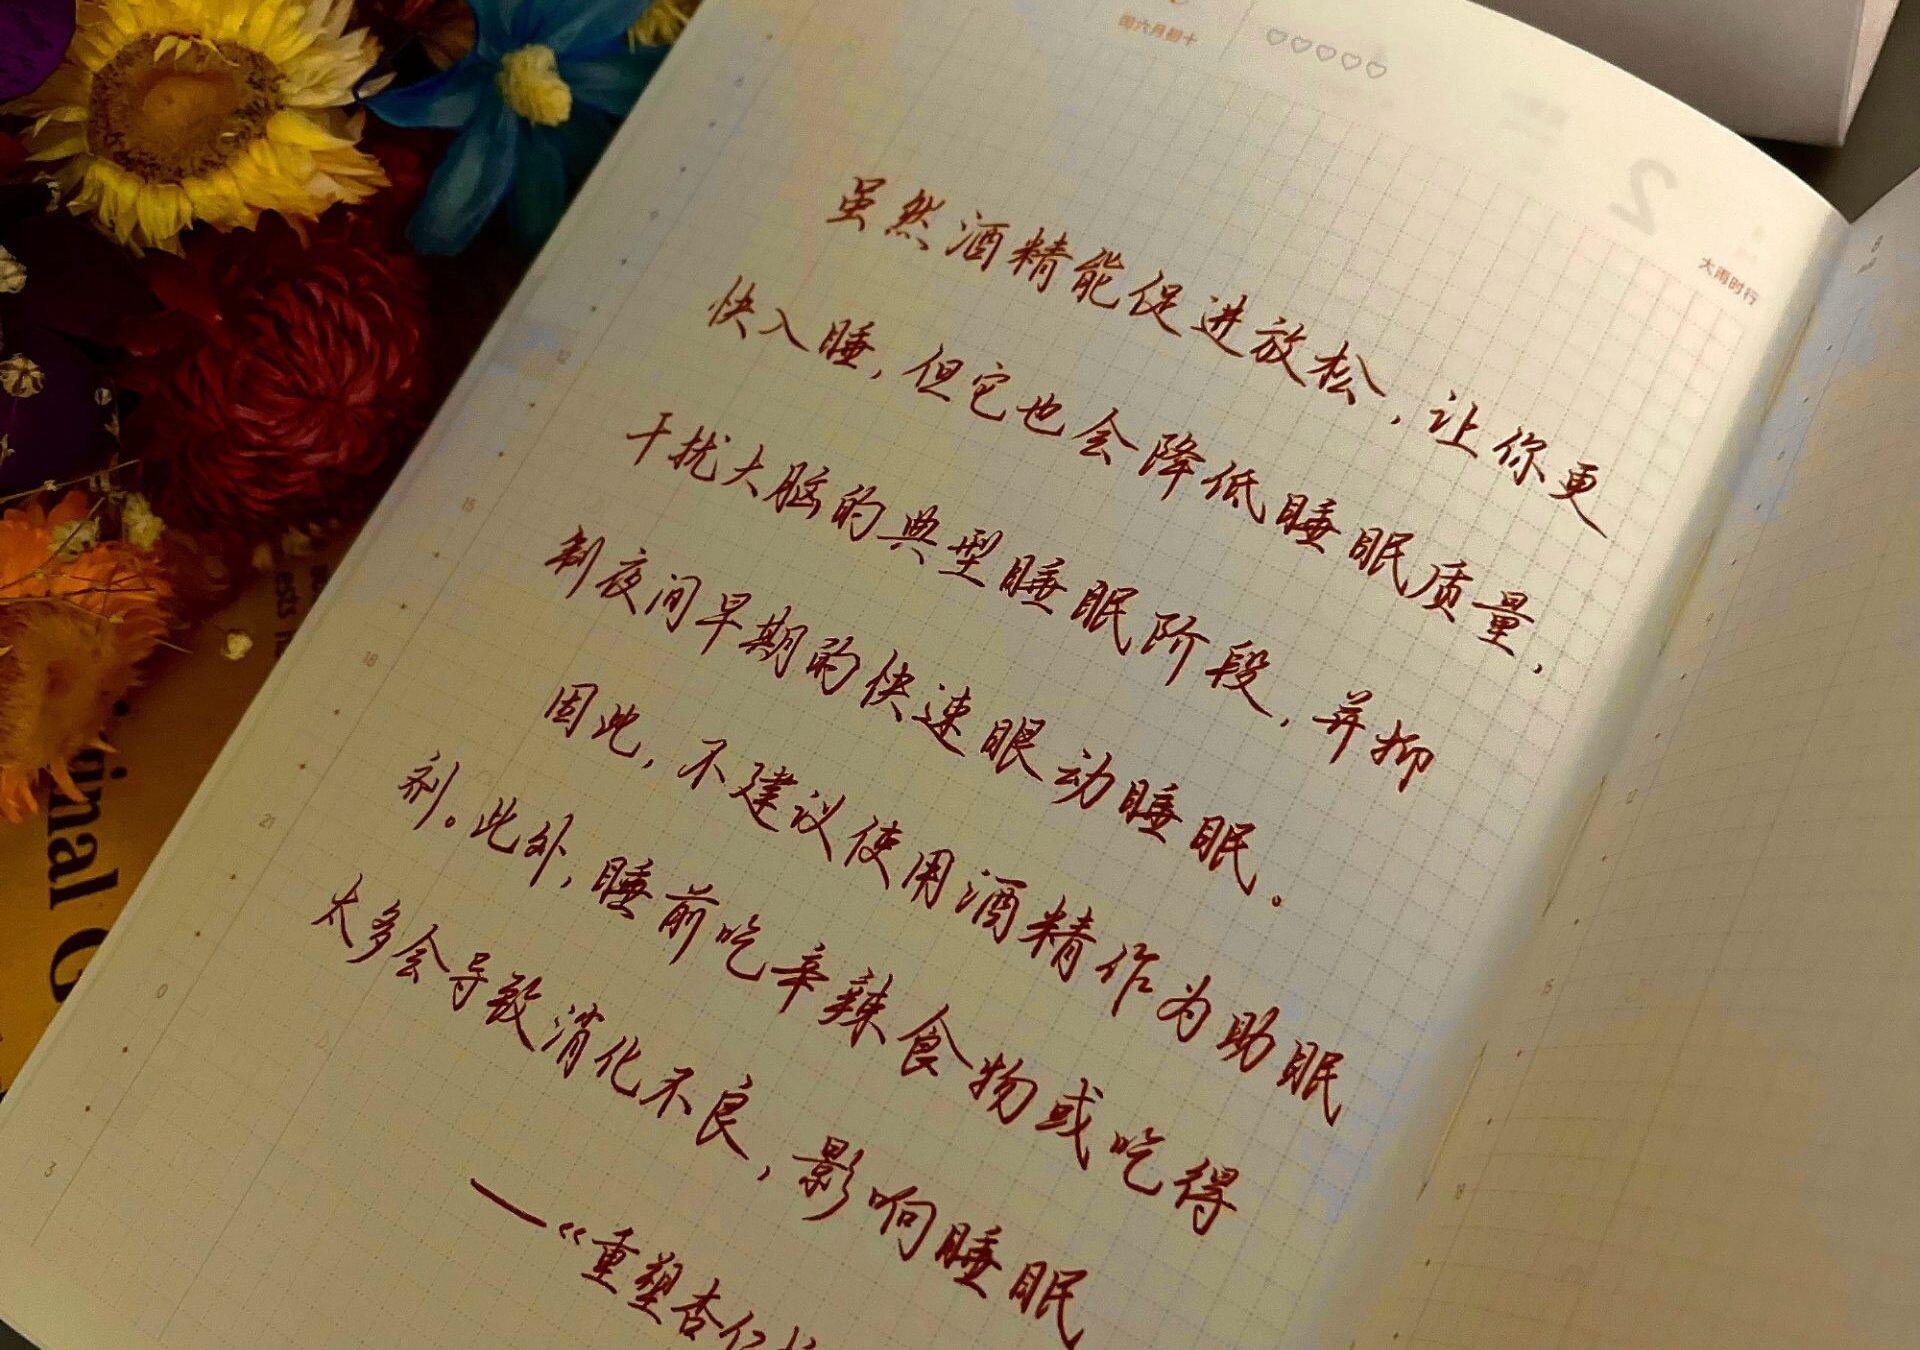 大雨时行
虽然酒精能促进放松，让你更
快入睡，但它也会降低睡眠质量，
干扰大脑的典型睡眠阶段，并抑
制夜间早期的快速眼动睡眠。
因此，不建议使用酒精作为助眠
剂。此外，睡前吃辛辣食物或吃得
太多会导致消化不良，影响睡眠
—《重塑杏仁
12
15
18
21
0
3